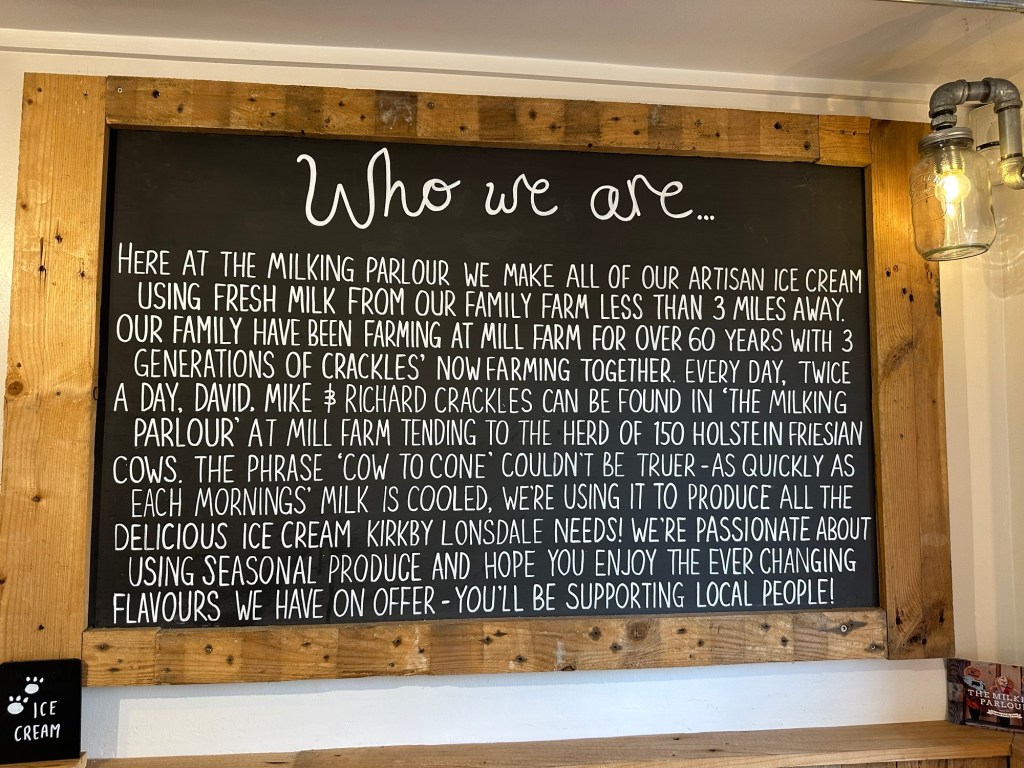 Who we are...
HERE AT THE MILKING PARLOUR WE MAKE ALL OF OUR ARTISAN ICE CREAM
USING FRESH MILK FROM OUR FAMILY FARM LESS THAN 3 MILES AWAY.
OUR FAMILY HAVE BEEN FARMING AT MILL FARM FOR OVER 60 YEARS WITH 3
GENERATIONS OF CRACKLES' NOW FARMING TOGETHER. EVERY DAY, TWICE
A DAY, DAVID, MIKE & RICHARD CRACKLES CAN BE FOUND IN 'THE MILKING
PARLOUR' AT MILL FARM TENDING TO THE HERD OF 150 HOLSTEIN FRIESIAN
COWS. THE PHRASE 'COW TO CONE' COULDN'T BE TRUER - AS QUICKLY AS
EACH MORNINGS' MILK IS COOLED, WE'RE USING IT TO PRODUCE ALL THE
DELICIOUS ICE CREAM KIRKBY LONSDALE NEEDS! WE'RE PASSIONATE ABOUT
USING SEASONAL PRODUCE AND HOPE YOU ENJOY THE EVER CHANGING
FLAVOURS WE HAVE ON OFFER - YOU'LL BE SUPPORTING LOCAL PEOPLE!
ICE
CREAM
THE